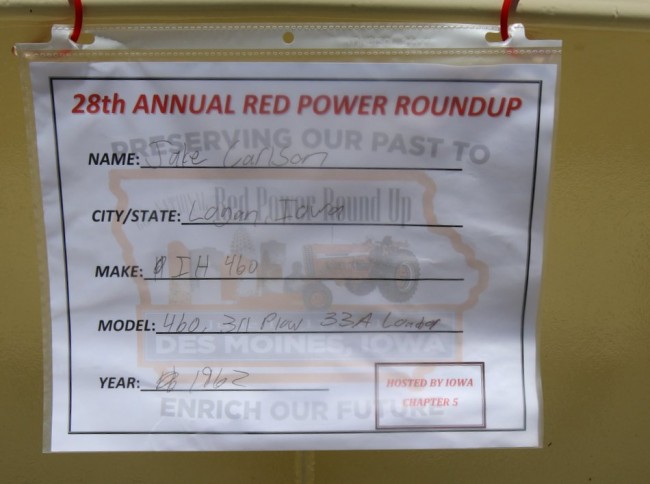 28th ANNUAL RED POWER ROUNDUP
PRESERVING OUR PAST TO
NAME: Jake Carlson
Red Power Round Up
CITY/STATE: Logan, Iowa
MAKE: IH 460
MODEL: 460, 311 Plow 33A Loader
DES MOINES, IOWA
YEAR: 1962
HOSTED BY IOWA
CHAPTER 5
ENRICH OUR FUTURE